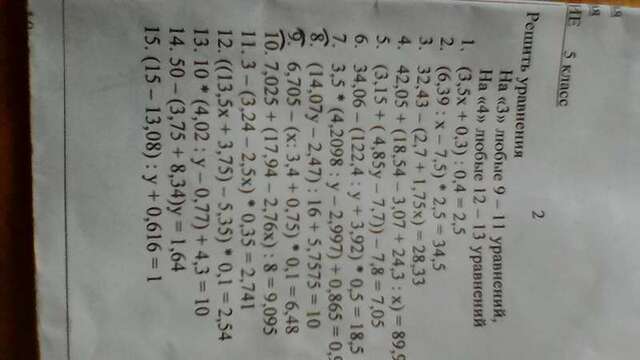 5 класс
2
Решить уравнения
На «3» любые 9 – 11 уравнений,
На «4» любые 12 – 13 уравнений
1. (3,5x + 0,3) : 0,4 = 2,5
2. (6,39 : x – 7,5) * 2,5 = 34,5
3. 32,43 – (2,7 + 1,75x) = 28,33
4. 42,05 + (18,54 – 3,07 + 24,3 : x) = 89,9
5. (3,15 + ( 4,85y – 7,7)) – 7,8 = 7,05
6. 34,06 – (122,4 : y + 3,92) * 0,5 = 18,5
7. 3,5 * (4,2098 : y – 2,997) + 0,865 = 0,9
8. (14,07y – 2,47) : 16 + 5,7575 = 10
9. 6,705 – (x: 3,4 + 0,75) * 0,1 = 6,48
10. 7,025 + (17,94 – 2,76x) : 8 = 9,095
11. 3 – (3,24 – 2,5x) * 0,35 = 2,741
12. ((13,5x + 3,75) – 5,35) * 0,1 = 2,54
13. 10 * (4,02 : y – 0,77) + 4,3 = 10
14. 50 – (3,75 + 8,34)y = 1,64
15. (15 – 13,08) : y + 0,616 = 1